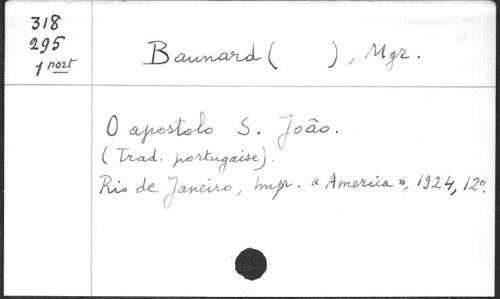 318
295
1 port
Baunard ( ), Mgr.
O apostolo S. João.
(Trad. portugaise).
Rio de Janeiro, Impr. « America », 1924, 12º.